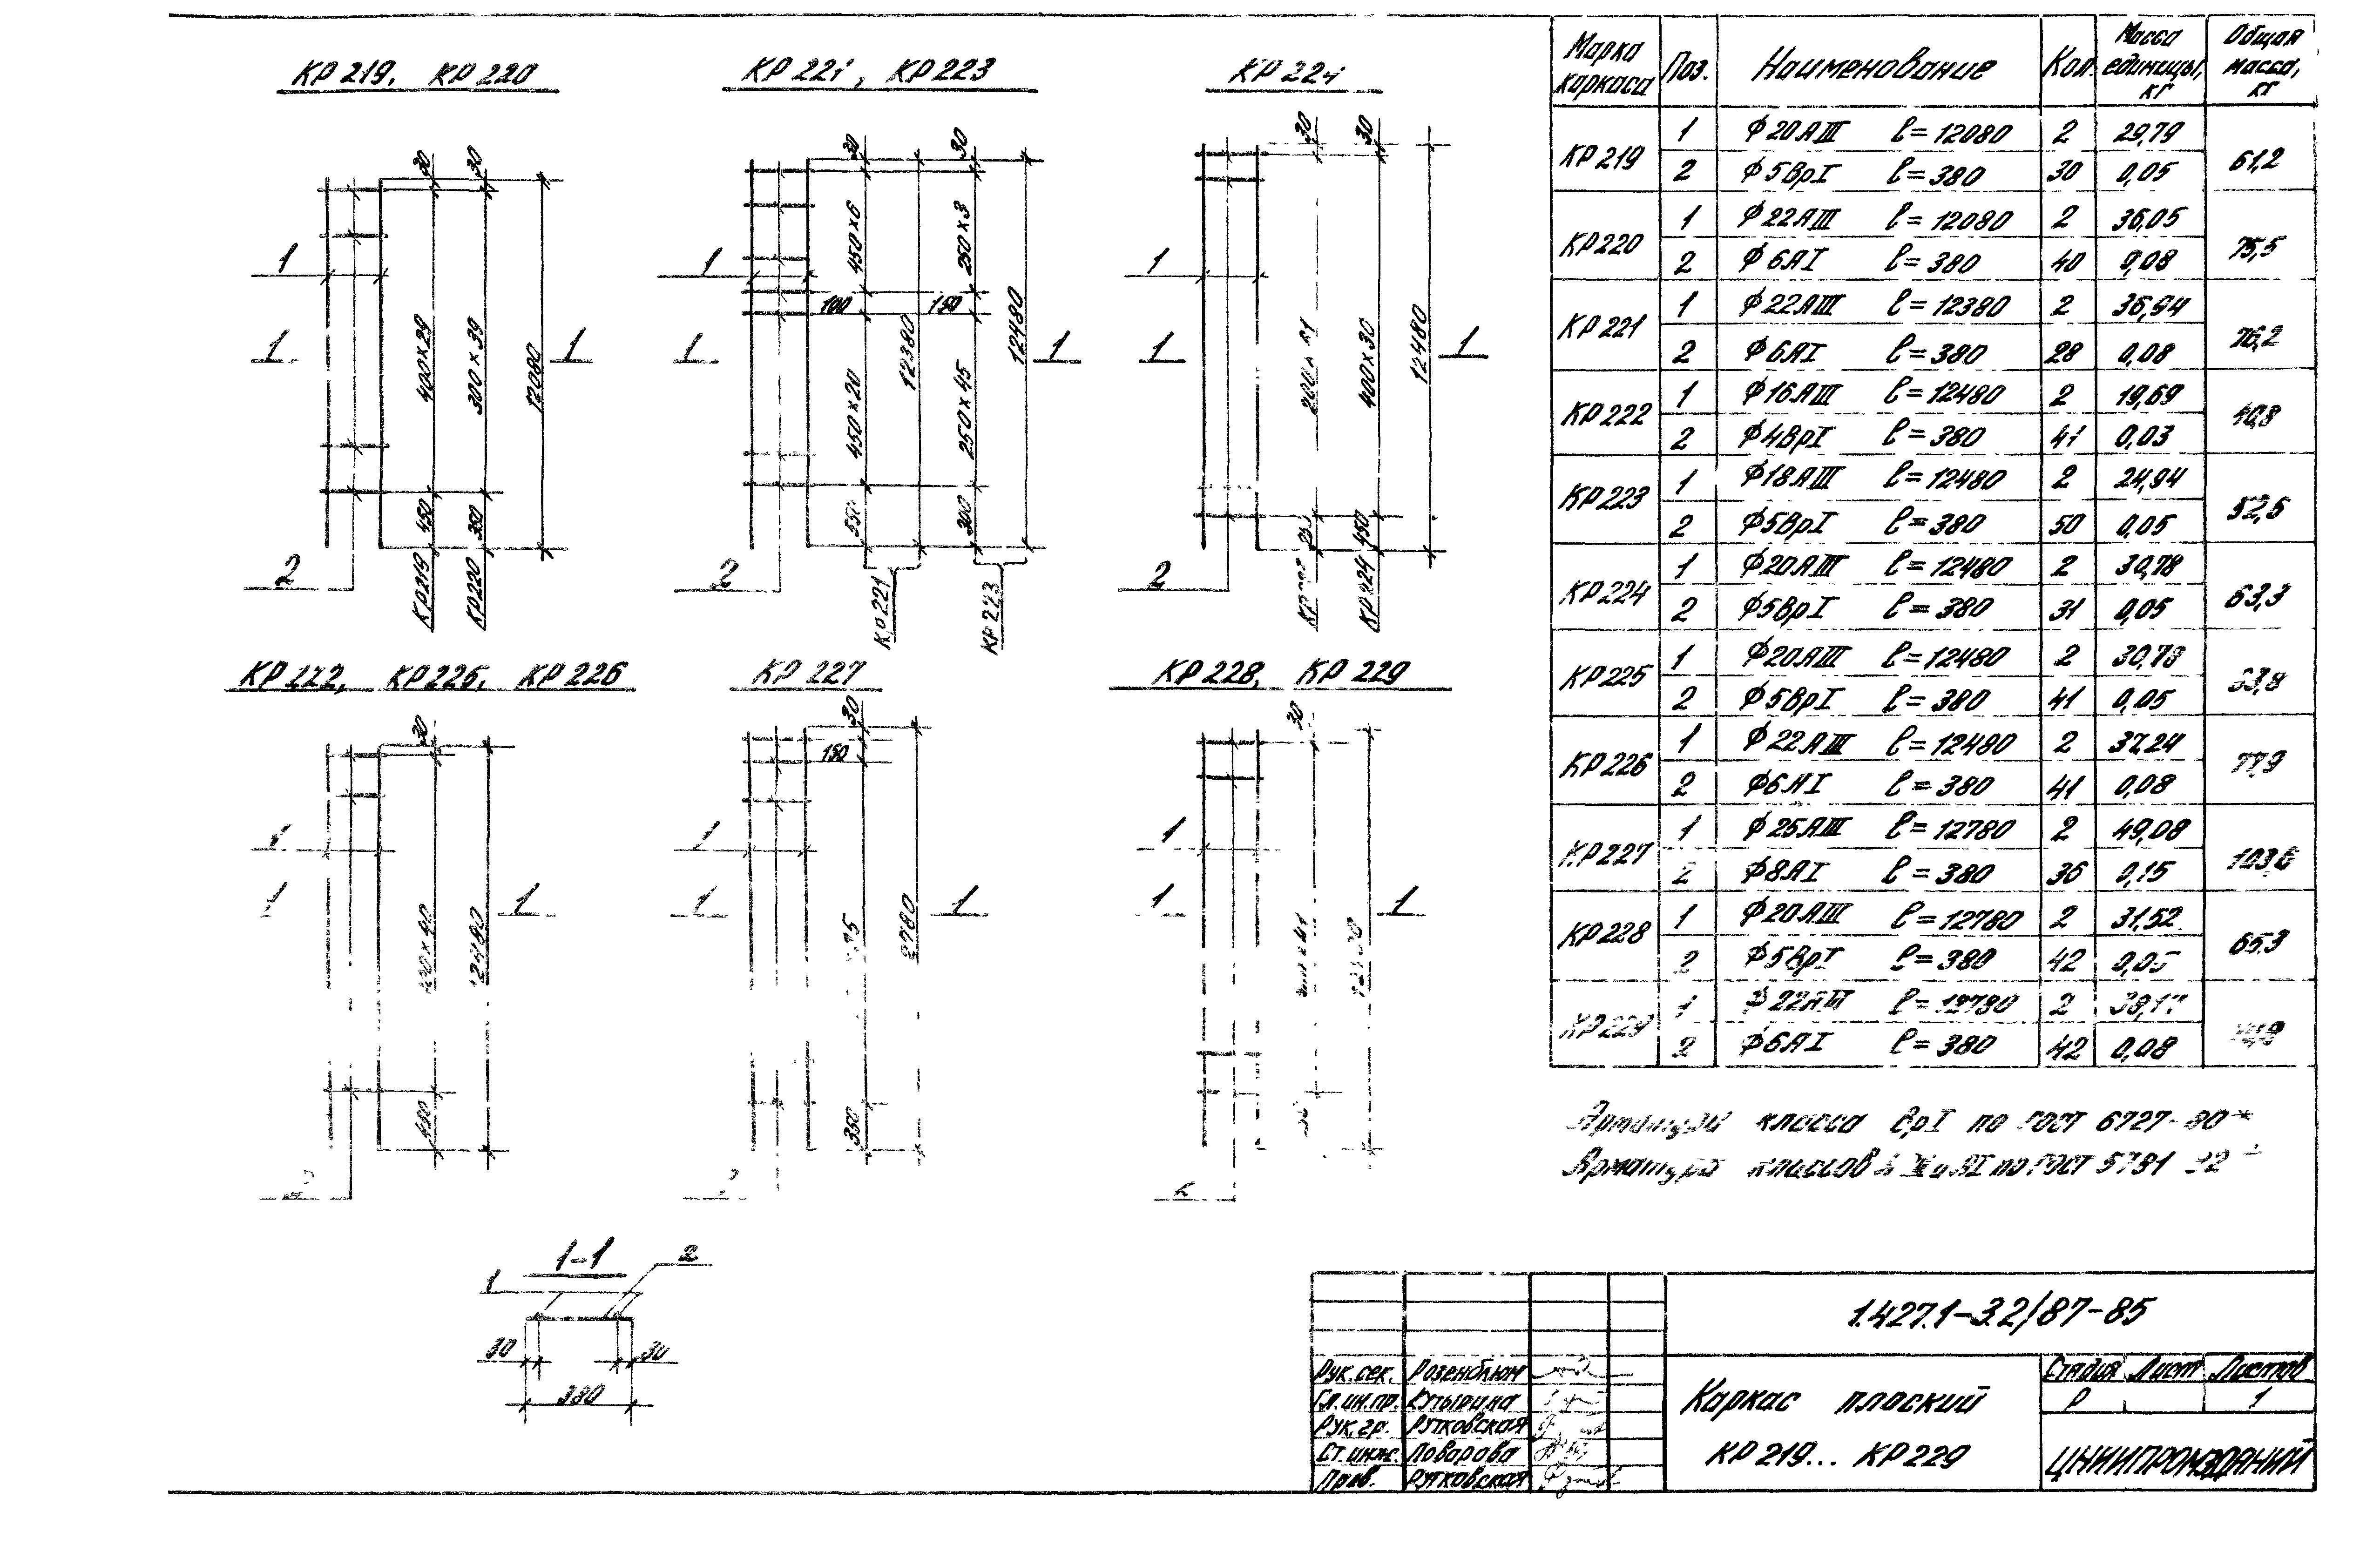 КР 219, КР 220
30
30
1
400×29
300×39
12080
1
1
450
350
2
КР219
КР220
КР 221, КР 223
30
30
450×6
250×3
1
100
150
12380
12480
1
1
450×20
250×45
300
2
КР221
КР223
КР 224
30
30
1
400×30
12480
1
1
450
2
КР 222, КР 225, КР 226
30
1
1
1
450
КР 227
30
150
1
1
1
350
КР 228, КР 229
30
1
1
1
1-1
1
2
30
30
380
Марка каркаса Поз. Наименование Кол. Масса единицы, кг Общая масса, кг
КР219 1 Ф20АIII ℓ=12080 2 29,79 61,2
2 Ф5ВрI ℓ=380 30 0,05
КР220 1 Ф22АIII ℓ=12080 2 36,05 75,5
2 Ф6АI ℓ=380 40 0,08
КР221 1 Ф22АIII ℓ=12380 2 36,94 76,2
2 Ф6АI ℓ=380 28 0,08
КР222 1 Ф16АIII ℓ=12480 2 19,69 40,8
2 Ф4ВрI ℓ=380 41 0,03
КР223 1 Ф18АIII ℓ=12480 2 24,94 52,5
2 Ф5ВрI ℓ=380 50 0,05
КР224 1 Ф20АIII ℓ=12480 2 30,78 63,3
2 Ф5ВрI ℓ=380 31 0,05
КР225 1 Ф20АIII ℓ=12480 2 30,78
2 Ф5ВрI ℓ=380 41 0,05
КР226 1 Ф22АIII ℓ=12480 2 37,24 77,9
2 Ф6АI ℓ=380 41 0,08
КР227 1 Ф25АIII ℓ=12780 2 49,08 103,6
2 Ф8АI ℓ=380 36 0,15
КР228 1 Ф20АIII ℓ=12780 2 31,52 65,3
2 Ф5ВрI ℓ=380 42 0,05
КР229 1 Ф22АIII ℓ=12780 2
2 Ф6АI ℓ=380 42 0,08
Арматура класса ВрI по ГОСТ 6727-80*
Арматура классов АIII и АI по ГОСТ 5781
1.427.1-3.2/87-85
Рук. сек. Розенблюм
Гл. ин. пр. Кутырина
Рук. гр. Рутковская
Ст. инж. Поварова
Пров. Рутковская
Каркас плоский
КР 219... КР 229
Стадия Лист Листов
Р 1
ЦНИИПРОМЗДАНИЙ